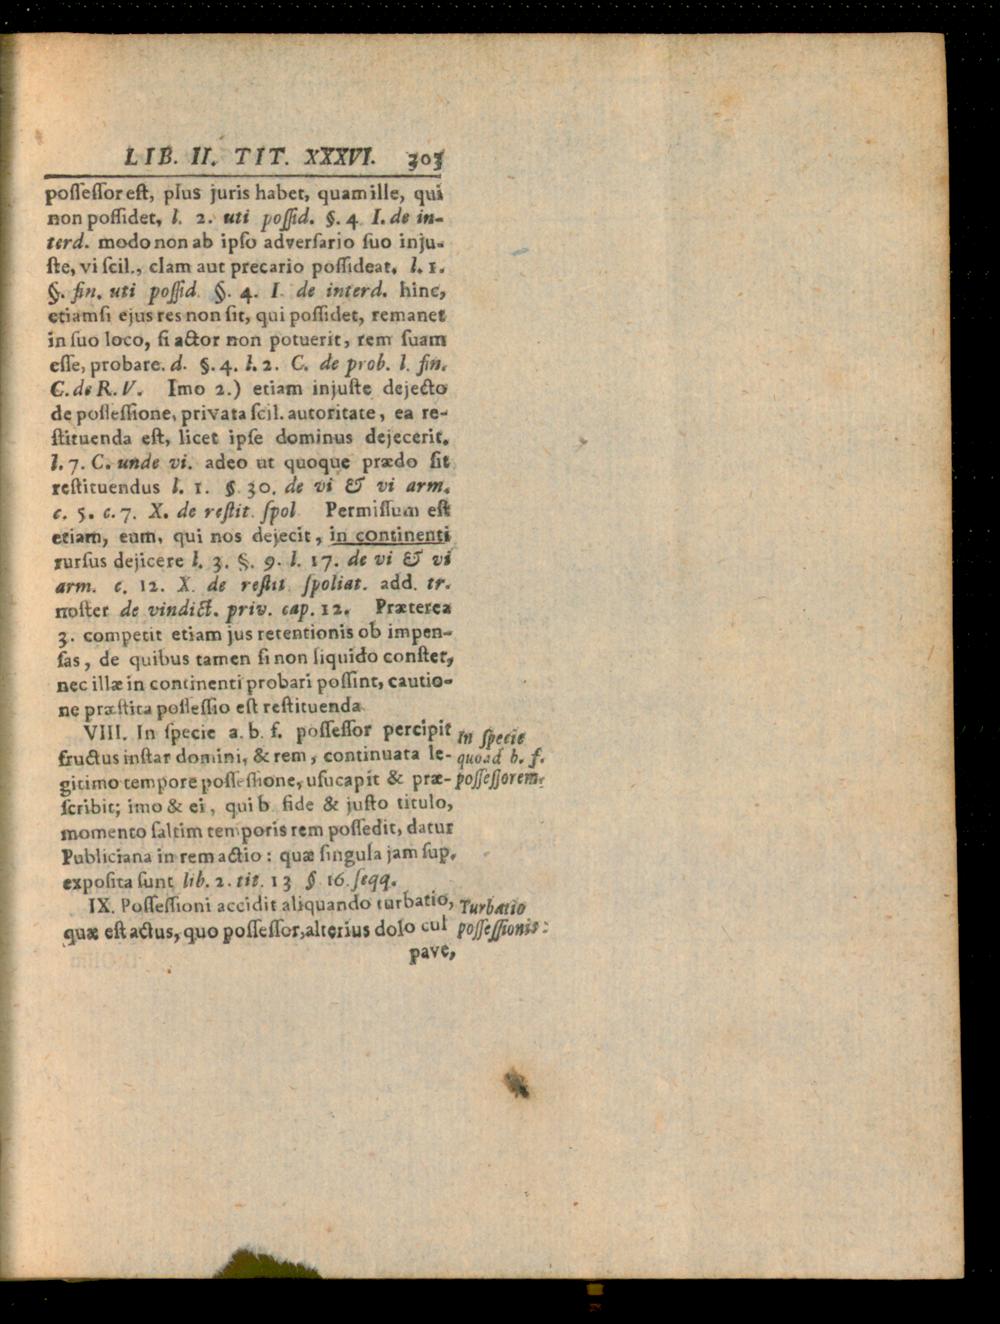 LIB. II. TIT. XXXVI. 303
possessor est, plus juris habet, quam ille, qui
non possidet, l. 2. uti possid. §. 4 I. de in-
terd. modo non ab ipso adversario suo inju-
ste, vi scil., clam aut precario possideat. l. 1.
§. fin. uti possid. §. 4. I. de interd. hinc,
etiamsi ejus res non sit, qui possidet, remanet
in suo loco, si actor non potuerit, rem suam
esse, probare. d. §. 4. l. 2. C. de prob. l. fin.
C. de R. V. Imo 2.) etiam injuste dejecto
de possessione, privata scil. autoritate, ea re-
stituenda est, licet ipse dominus dejecerit.
l. 7. C. unde vi. adeo ut quoque prædo sit
restituendus l. 1. §. 30. de vi & vi arm.
c. 5. c. 7. X. de restit. spol Permissum est
etiam, eum, qui nos dejecit, in continenti
rursus dejicere l. 3. §. 9. l. 17. de vi & vi
arm. c. 12. X. de restit spoliat. add. tr.
noster de vindict. priv. cap. 12. Præterea
3. competit etiam jus retentionis ob impen-
sas, de quibus tamen si non liquido constet,
nec illæ in continenti probari possint, cautio-
ne præstita possessio est restituenda
VIII. In specie a. b. f. possessor percipit
In specie
fructus instar domini, & rem, continuata le-
quoad b. f.
gitimo tempore possessione, usucapit & præ-
possessorem.
scribit; imo & ei, qui b. fide & justo titulo,
momento saltim temporis rem possedit, datur
Publiciana in rem actio: quæ singula jam sup.
exposita sunt lib. 2. tit. 13 § 16. seqq.
IX. Possessioni accidit aliquando turbatio,
Turbatio
quæ est actus, quo possessor, alterius dolo cul
possessionis:
pave,